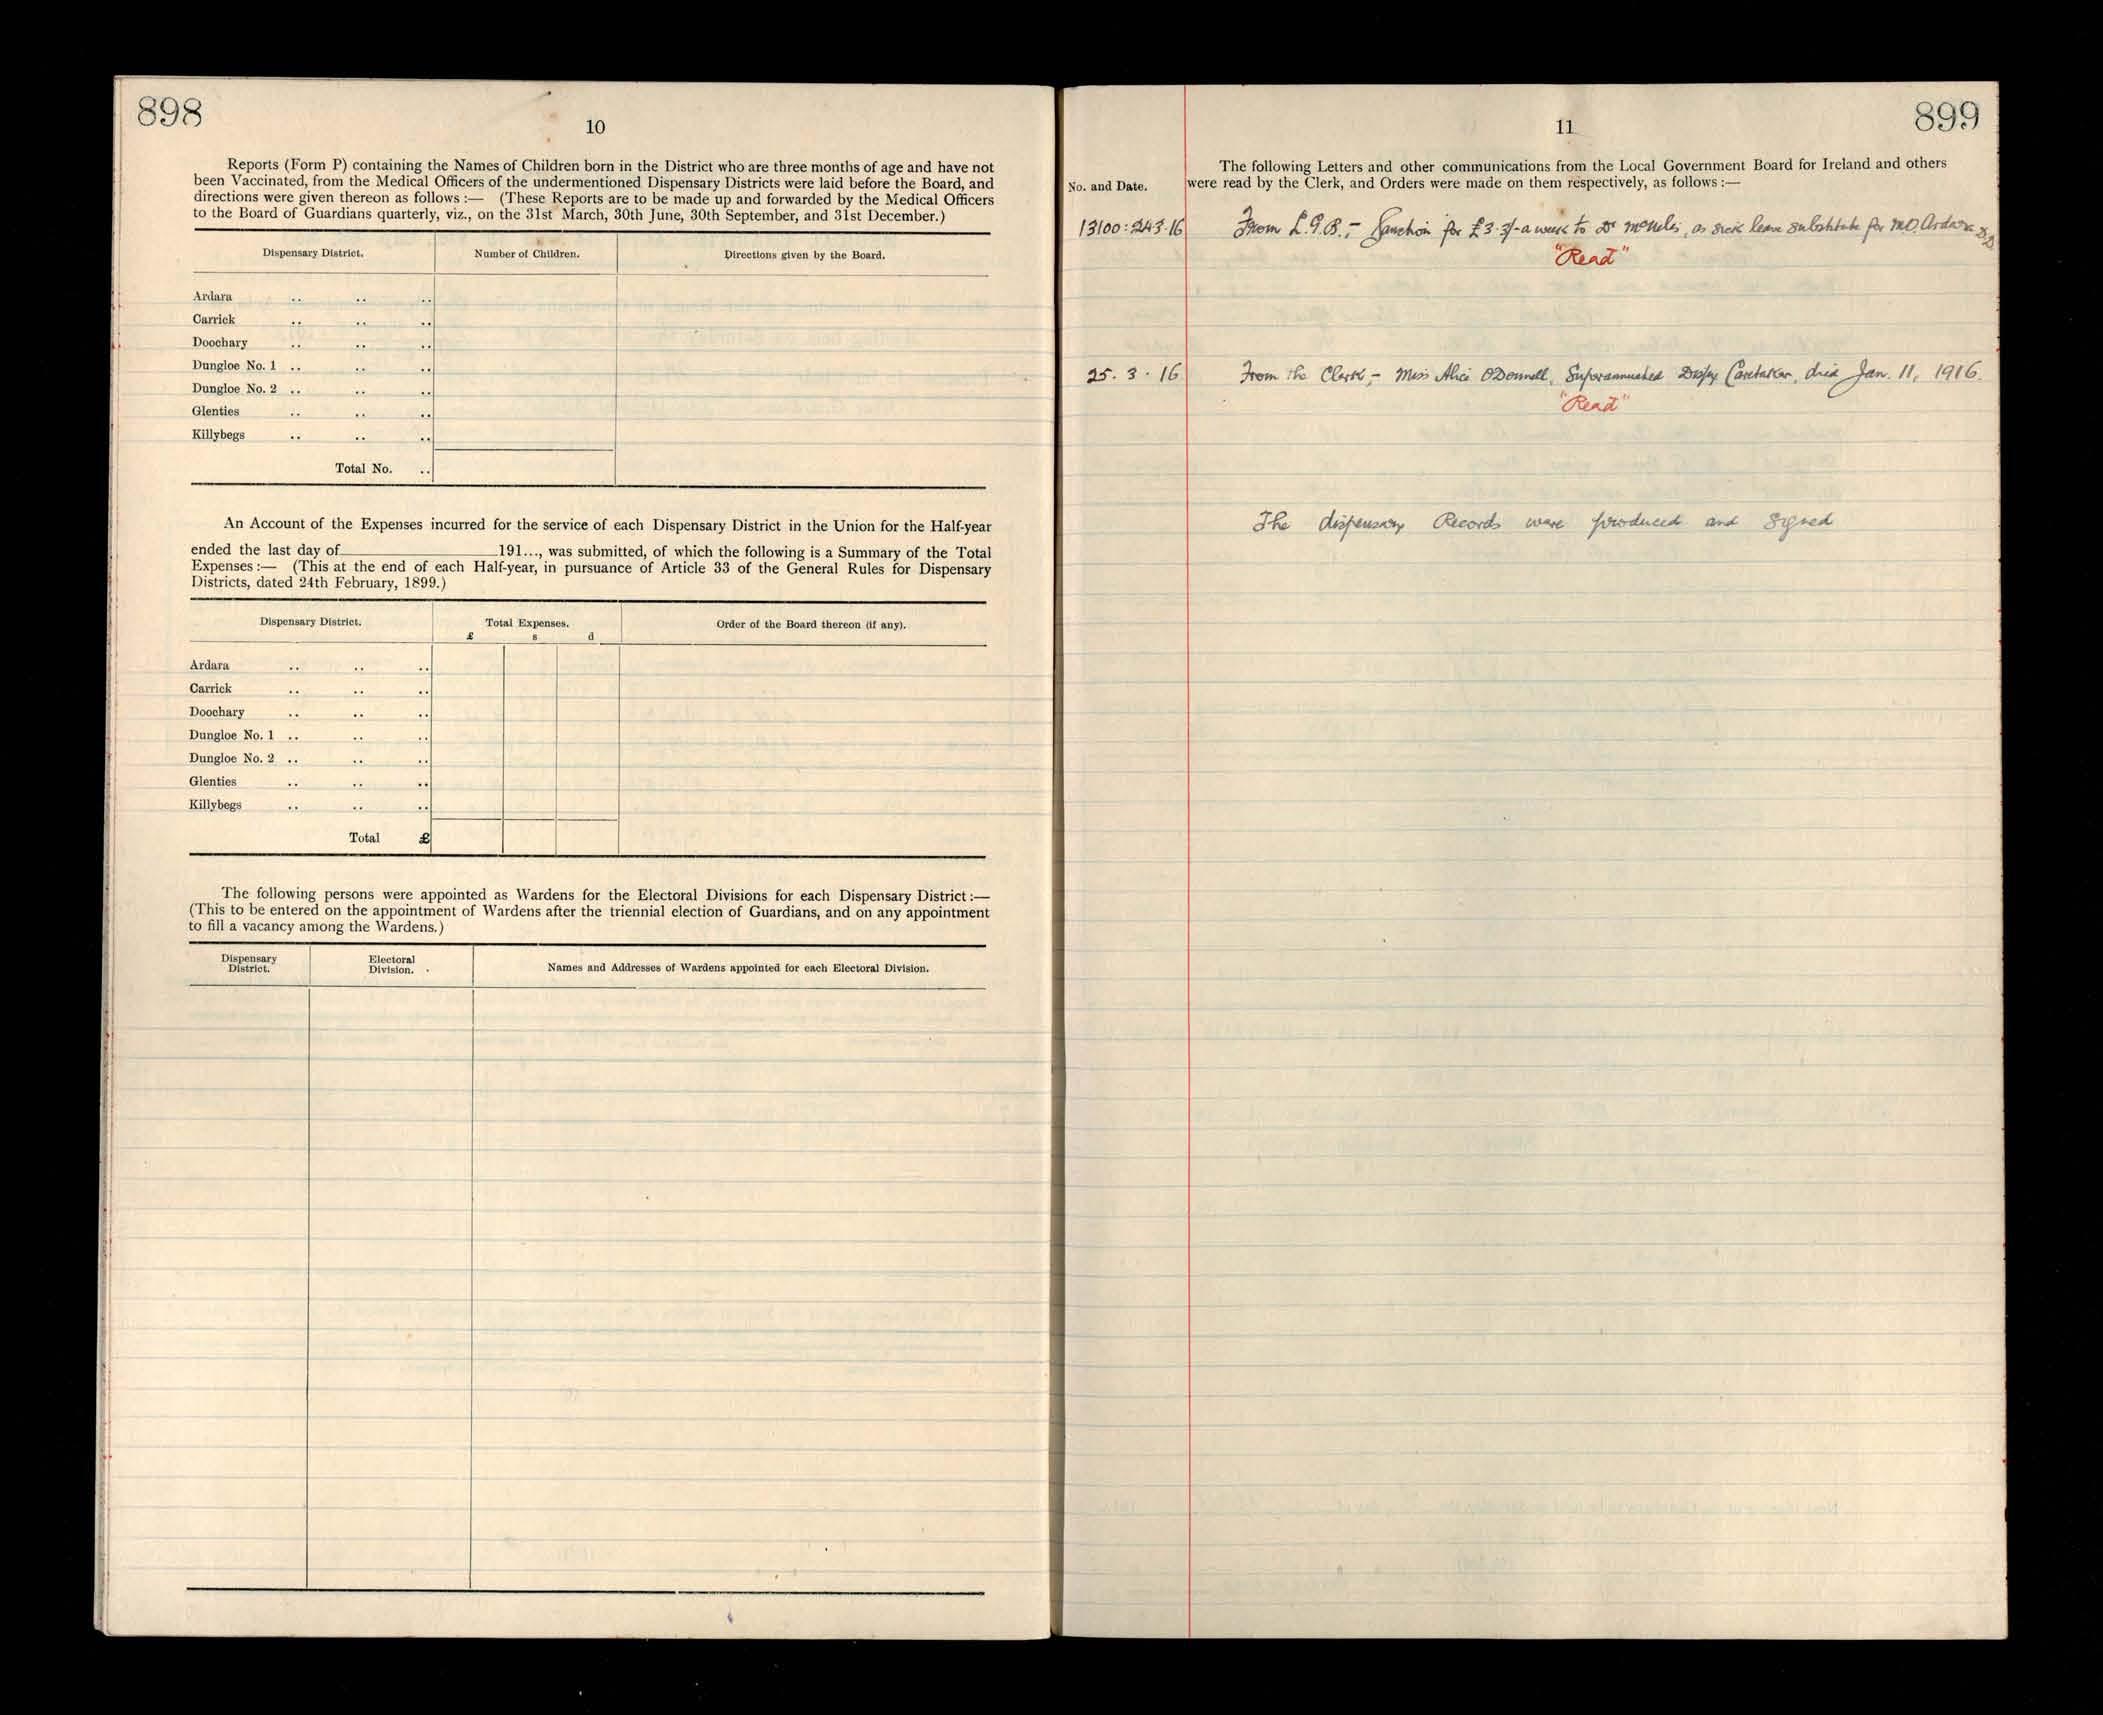 898
10
Reports (Form P) containing the Names of Children born in the District who are three months of age and have not
been Vaccinated, from the Medical Officers of the undermentioned Dispensary Districts were laid before the Board, and
directions were given thereon as follows :— (These Reports are to be made up and forwarded by the Medical Officers
to the Board of Guardians quarterly, viz., on the 31st March, 30th June, 30th September, and 31st December.)
Dispensary District. Number of Children. Directions given by the Board.
Ardara .. .. ..
Carrick .. .. ..
Doochary .. .. ..
Dungloe No. 1 .. .. ..
Dungloe No. 2 .. .. ..
Glenties .. .. ..
Killybegs .. .. ..
Total No. ..
An Account of the Expenses incurred for the service of each Dispensary District in the Union for the Half-year
ended the last day of 191..., was submitted, of which the following is a Summary of the Total
Expenses :— (This at the end of each Half-year, in pursuance of Article 33 of the General Rules for Dispensary
Districts, dated 24th February, 1899.)
Dispensary District. Total Expenses. Order of the Board thereon (if any).
£ s d
Ardara .. .. ..
Carrick .. .. ..
Doochary .. .. ..
Dungloe No. 1 .. .. ..
Dungloe No. 2 .. .. ..
Glenties .. .. ..
Killybegs .. .. ..
Total £
The following persons were appointed as Wardens for the Electoral Divisions for each Dispensary District :—
(This to be entered on the appointment of Wardens after the triennial election of Guardians, and on any appointment
to fill a vacancy among the Wardens.)
Dispensary District. Electoral Division. Names and Addresses of Wardens appointed for each Electoral Division.
899
11
The following Letters and other communications from the Local Government Board for Ireland and others
No. and Date. were read by the Clerk, and Orders were made on them respectively, as follows :—
13100:24·3·16 From L.G.B.,- Sanction for £3·3/- a week to Dr McNelis, as sick leave substitute for M.O. Ardara D.D
"Read"
25·3·16 From the Clerk,- Miss Alice O'Donnell, Superannuated Dispy Caretaker, died Jan. 11, 1916.
"Read"
The dispensary Records were produced and signed